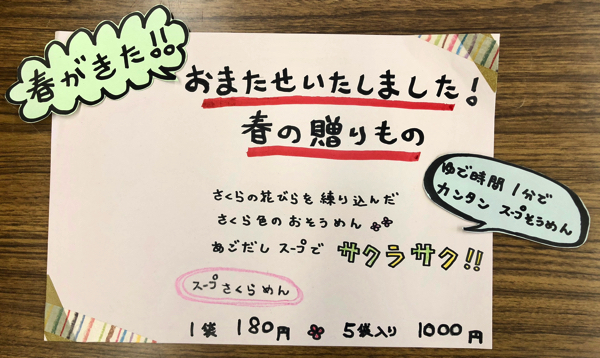 春がきた!!
おまたせいたしました!
春の贈りもの
ゆで時間 1分で
カンタン スープそうめん
さくらの花びらを練り込んだ
さくら色の おそうめん
あごだし スープで サクラサク!!
スープさくらめん
1袋 180円 5袋入り 1000円